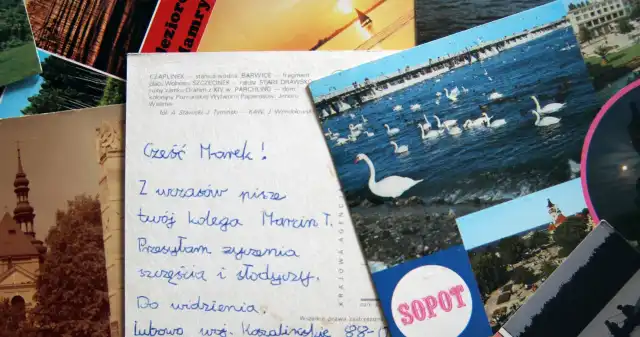 Jezioro
Mamry
CZAPLINEK — BARWICE — fragment
SZCZECINEK — STARE DRAWSKO
XIV w. PARCHLINO — dom
Cześć Marek!
Z wczasów pisze
twój kolega Marcin T.
Przesyłam życzenia
szczęścia i słodyczy.
Do widzenia.
Lubowo woj. Koszalińskie 88-
KRAJOWA AGENCJA
SOPOT